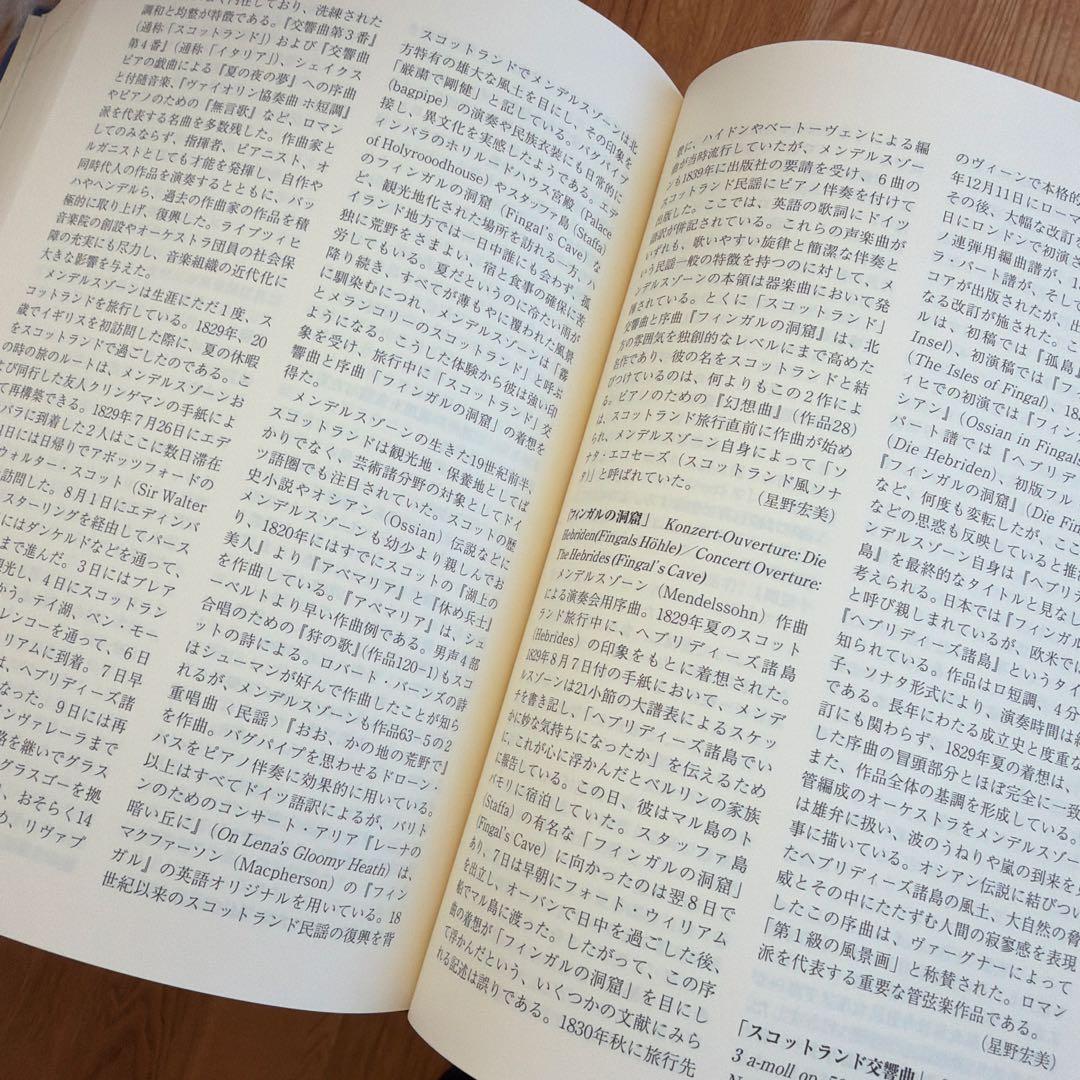 調和と均整が特徴である。『交響曲第3番』
(通称「スコットランド」)および『交響曲
第4番』(通称「イタリア」)、シェイクス
ピアの戯曲による『夏の夜の夢』への序曲
と付随音楽、『ヴァイオリン協奏曲 ホ短調』
やピアノのための『無言歌』など、ロマン
派を代表する名曲を多数残した。作曲家と
してのみならず、指揮者、ピアニスト、オ
ルガニストとしても才能を発揮し、自作や
同時代人の作品を演奏するとともに、バッ
ハやヘンデルら、過去の作曲家の作品を積
極的に取り上げ、復興した。ライプツィヒ
音楽院の創設やオーケストラ団員の社会保
障の充実にも尽力し、音楽組織の近代化に
大きな影響を与えた。
メンデルスゾーンは生涯にただ1度、ス
コットランドを旅行している。1829年、20
歳でイギリスを初訪問した際に、夏の休暇
をスコットランドで過ごしたのである。こ
の時の旅のルートは、メンデルスゾーンお
よび同行した友人クリンゲマンの手紙によ
て再構築できる。1829年7月26日にエデ
バラに到着した2人はここに数日滞在
1日には日帰りでアボッツフォードの
ウォルター・スコット(Sir Walter
訪問した。8月1日にエディンバ
スターリングを経由してパース
にはダンケルドなどを通って、
まで進んだ。3日にはブレア
光し、4日にスコットラン
かう。テイ湖、ベン・モー
レンコーを通って、6日
リアムに到着。7日早
は、ヘブリディーズ諸
なった。9日には再
インヴァレーラまで
路を継いでグラス
グラスゴーを拠
、おそらく14
め、リヴァプ
スコットランドでメンデルスゾーンは北
方特有の雄大な風土を目にし、その印象を
「厳粛で剛健」と記している。バグパイプ
(bagpipe)の演奏や民族衣装にも日常的に
接し、異文化を実感したようである。エデ
ィンバラのホリルードハウス宮殿(Palace
of Holyrooodhouse)やスタッファ島(Staffa)
のフィンガルの洞窟(Fingal's Cave)な
ど、観光地化された場所を訪れる一方、ハ
イランド地方では一日中誰にも会わず、孤
独に荒野をさまよい、宿と食事の確保に苦
労してもいる。夏だというのに冷たい雨が
降り続き、すべてが薄もやに覆われた風景
に馴染むにつれ、メンデルスゾーンは「霧
とメランコリーのスコットランド」と呼ぶ
ようになる。こうした体験から彼は強い印
象を受け、旅行中に「スコットランド」交
響曲と序曲『フィンガルの洞窟』の着想を
得た。
メンデルスゾーンの生きた19世紀前半、
スコットランドは観光地・保養地としてば
かりでなく、芸術諸分野の対象としてドイ
ツ語圏でも注目されていた。スコットの歴
史小説やオシアン(Ossian)伝説などに
メンデルスゾーンも幼少より親しんでお
り、1820年にはすでにスコットの『湖上の
美人』より『アベマリア』と『休め兵士』
を作曲している。『アベマリア』は、シュ
ーベルトより早い作曲例である。男声4部
合唱のための『狩の歌』(作品120-1)もスコ
ットの詩による。ロバート・バーンズの詩
はシューマンが好んで作曲したことが知ら
れるが、メンデルスゾーンも作品63-5の2
重唱曲〈民謡〉『おお、かの地の荒野で』
を作曲。バグパイプを思わせるドローン・
バスをピアノ伴奏に効果的に用いている。
以上はすべてドイツ語訳によるが、バリト
ンのためのコンサート・アリア『レーナの
暗い丘に』(On Lena's Gloomy Heath)は、
マクファーソン(Macpherson)の『フィン
ガル』の英語オリジナルを用いている。18
世紀以来のスコットランド民謡の復興を背
に、ハイドンやベートーヴェンによる編
曲が当時流行していたが、メンデルスゾー
ンも1839年に出版社の要請を受け、6曲の
スコットランド民謡にピアノ伴奏を付けて
出版した。ここでは、英語の歌詞にドイツ
語訳が併記されている。これらの声楽曲が
いずれも、歌いやすい旋律と簡潔な伴奏と
いう民謡一般の特徴を持つのに対して、メ
ンデルスゾーンの本領は器楽曲において発
揮されている。とくに「スコットランド」
交響曲と序曲『フィンガルの洞窟』は、北
方の雰囲気を独創的なレベルにまで高めた
名作であり、彼の名をスコットランドと結
びつけているのは、何よりもこの2作によ
る。ピアノのための『幻想曲』(作品28)
は、スコットランド旅行直前に作曲が始め
られ、メンデルスゾーン自身によって「ソ
ナタ・エコセーズ(スコットランド風ソナ
タ)」と呼ばれていた。
(星野宏美)
「フィンガルの洞窟」 Konzert-Ouverture: Die
Hebriden(Fingals Höhle)/Concert Overture:
The Hebrides (Fingal's Cave)
メンデルスゾーン(Mendelssohn)作曲
による演奏会用序曲。1829年夏のスコット
ランド旅行中に、ヘブリディーズ諸島
(Hebrides)の印象をもとに着想された。
1829年8月7日付の手紙において、メンデ
ルスゾーンは21小節の大譜表によるスケッ
チを書き記し、「ヘブリディーズ諸島でい
かに妙な気持ちになったか」を伝えるため
に、これが心に浮かんだとベルリンの家族
に報告している。この日、彼はマル島のト
バモリに宿泊していた。スタッファ島
(Staffa)の有名な「フィンガルの洞窟」
(Fingal's Cave)に向かったのは翌8日で
あり、7日は早朝にフォート・ウィリアム
を出立し、オーバンで日中を過ごした後、
船でマル島に渡った。したがって、この序
曲の着想が「フィンガルの洞窟」を目にし
て浮かんだという、いくつかの文献にみら
れる記述は誤りである。1830年秋に旅行先
のヴィーンで本格的
年12月11日にローマ
その後、大幅な改訂を
日にロンドンで初演さ
ノ連弾用編曲が、1
ラ・パート譜が、そして
コアが出版されたが、出
なる改訂が施された。こ
ルは、初稿では『孤島
Insel)、初演稿では『フ
(The Isles of Fingal)、18
ィヒでの初演では『フィン
シアン』(Ossian in Fingals
パート譜では『ヘブリデ
(Die Hebriden)、初版フル
『フィンガルの洞窟』(Die Fin
など、何度も変転しが、ここ
などの思惑も反映していると推
ンデルスゾーン自身は『ヘブリ
島』を最終的なタイトルと見なし
考えられる。日本では『フィンガル
と呼び親しまれているが、欧米では
『ヘブリディーズ諸島』というタイ
知られている。作品はロ短調、4分
子、ソナタ形式により、演奏時間は約
である。長年にわたる成立史と度重な
訂にも関わらず、1829年夏の着想は、
した序曲の冒頭部分とほぼ完全に一致
また、作品全体の基調を形成している。
管編成のオーケストラをメンデルスゾー
は雄弁に扱い、波のうねりや嵐の到来を
事に描いている。オシアン伝説に結びつい
たヘブリディーズ諸島の風土、大自然の脅
威とその中にたたずむ人間の寂寥感を表現
したこの序曲は、ヴァーグナーによって
「第1級の風景画」と称賛された。ロマン
派を代表する重要な管弦楽作品である。
(星野宏美)
「スコットランド交響曲」
3 a-moll op.